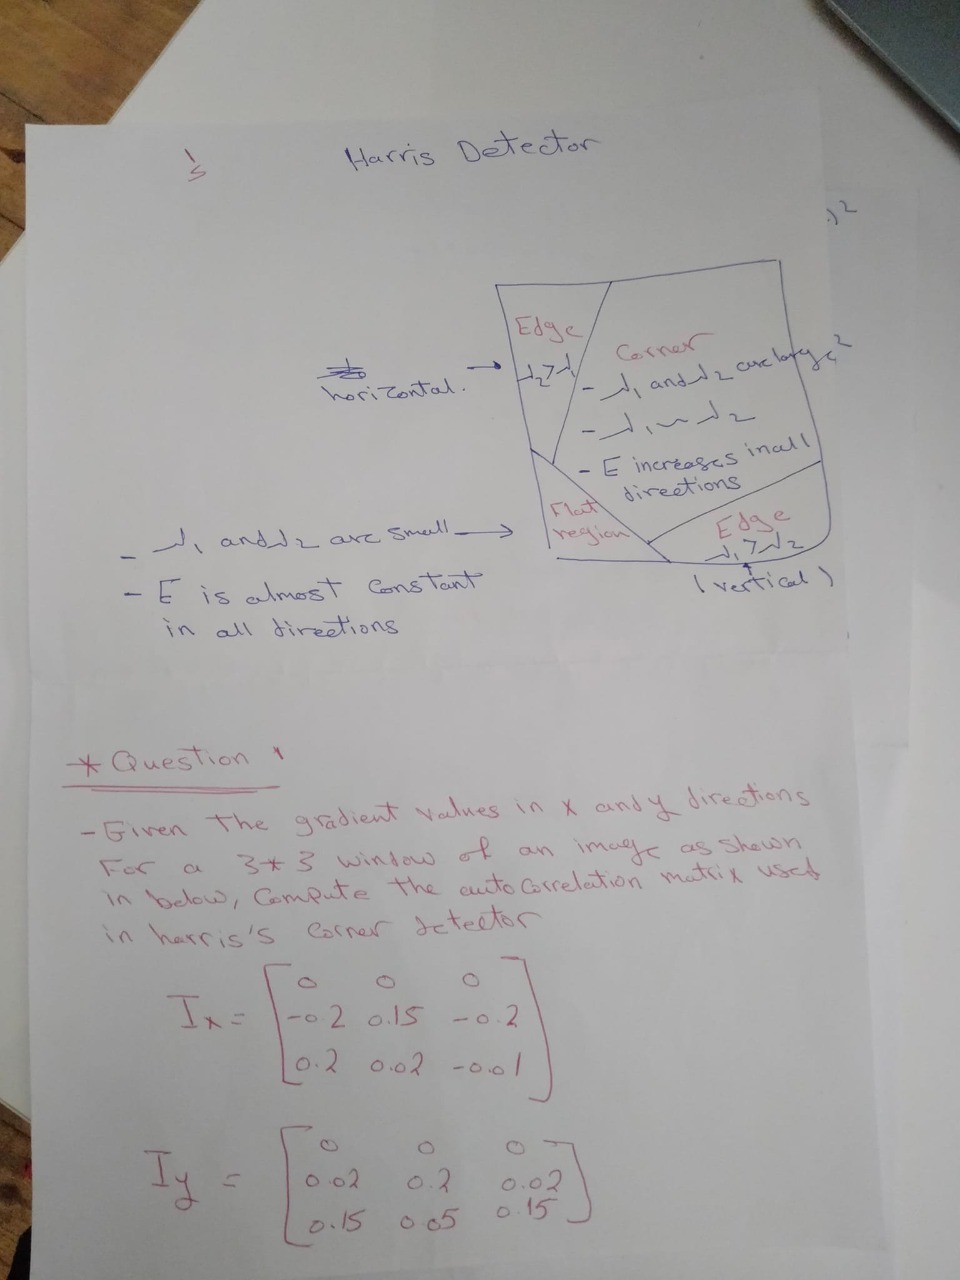 Harris Detector
)²
Edge
λ₂>λ₁
horizontal.
Corner
- λ₁ and λ₂ are large
2
- λ₁ ~ λ₂
- E increases in all
directions
Flat
region
Edge
λ₁>λ₂
(vertical)
- λ₁ and λ₂ are small
- E is almost constant
in all directions
* Question
- Given the gradient values in x and y directions
For a 3*3 window of an image as shown
in below, Compute the auto correlation matrix used
in harris's Corner detector
Ix = [ 0 0 0
-0.2 0.15 -0.2
0.2 0.02 -0.01 ]
Iy = [ 0 0 0
0.02 0.2 0.02
0.15 0.05 0.15 ]